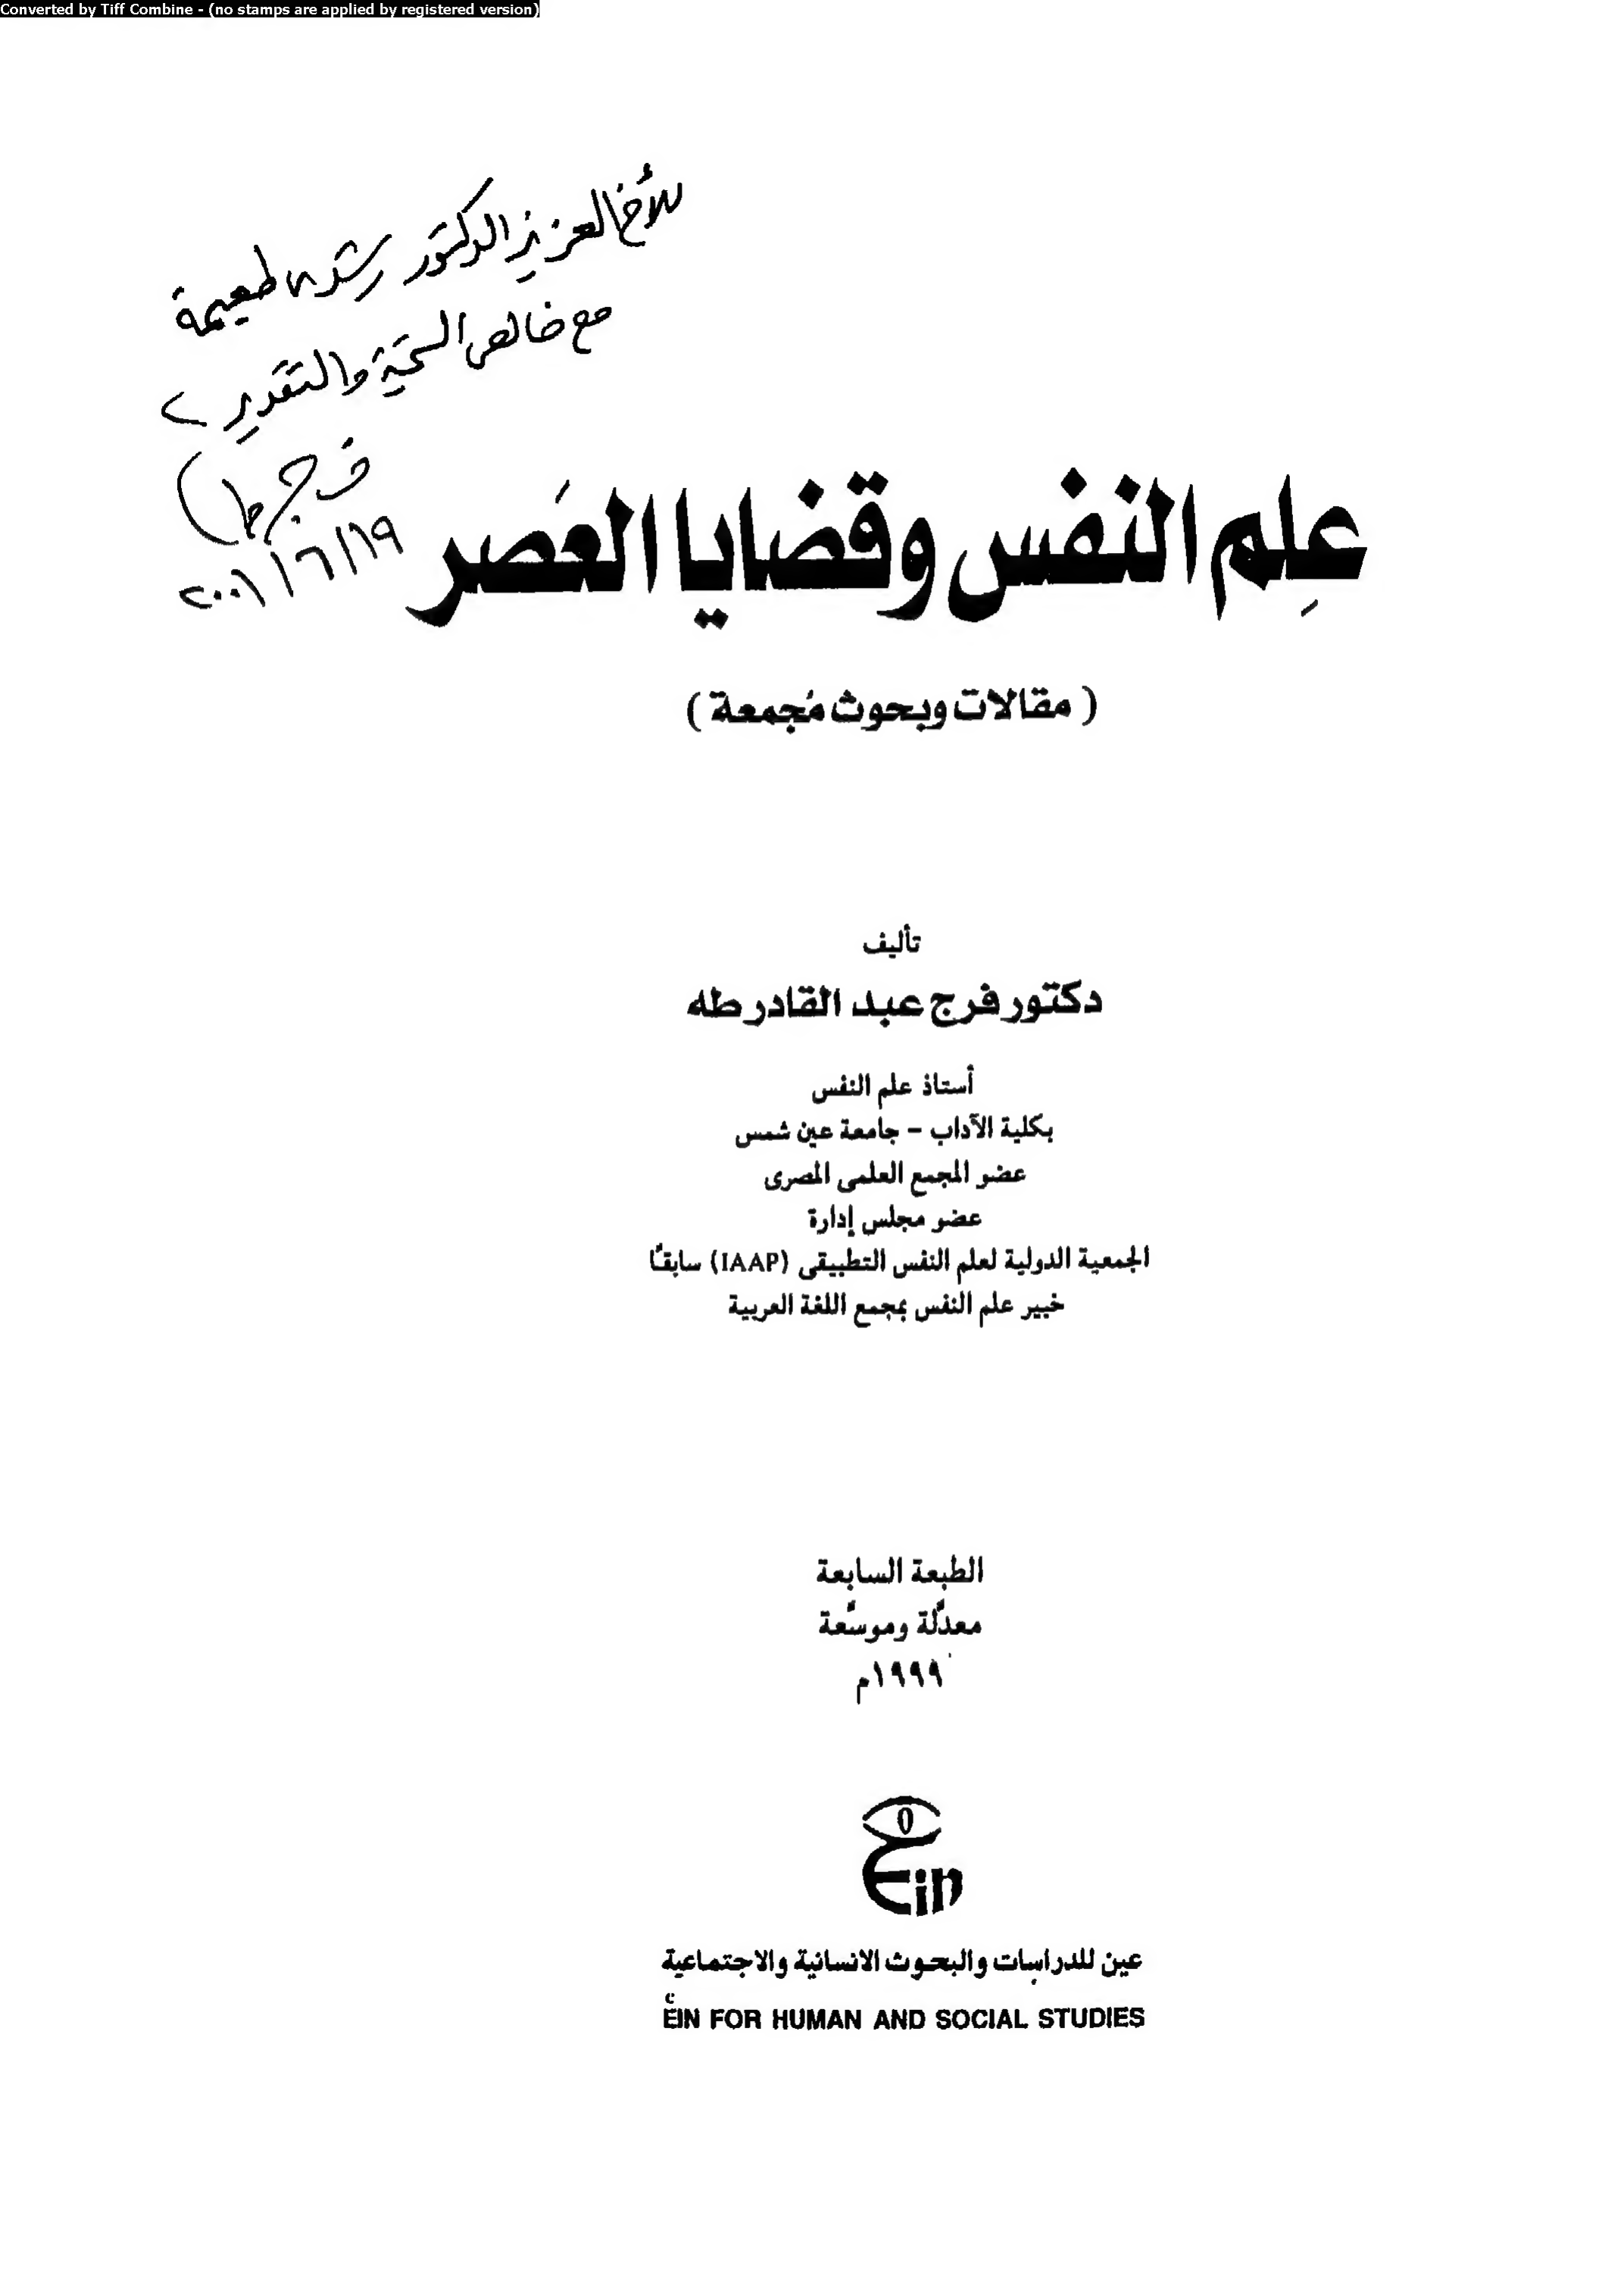 Converted by Tiff Combine - (no stamps are applied by registered version)
للأخ العزيز الدكتور رشدى طعيمة
مع خالص التحية والتقدير ،
فرج طه
١٩/٦/٢٠٠١
عِلم النفس وقضايا العَصر
( مقالات وبحوث مُجمعة )
تأليف
دكتور فرج عبد القادر طه
أستاذ علم النفس
بكلية الآداب – جامعة عين شمس
عضو المجمع العلمى المصرى
عضو مجلس إدارة
الجمعية الدولية لعلم النفس التطبيقى (IAAP) سابقًا
خبير علم النفس بمجمع اللغة العربية
الطبعة السابعة
معدّلة وموسّعة
١٩٩٩م
Ein
عين للدراسات والبحوث الانسانية والاجتماعية
EIN FOR HUMAN AND SOCIAL STUDIES